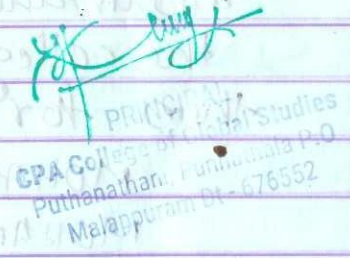 PRINCIPAL
CPA College of Global Studies
Puthanathani, Punnathala P.O
Malappuram Dt - 676552